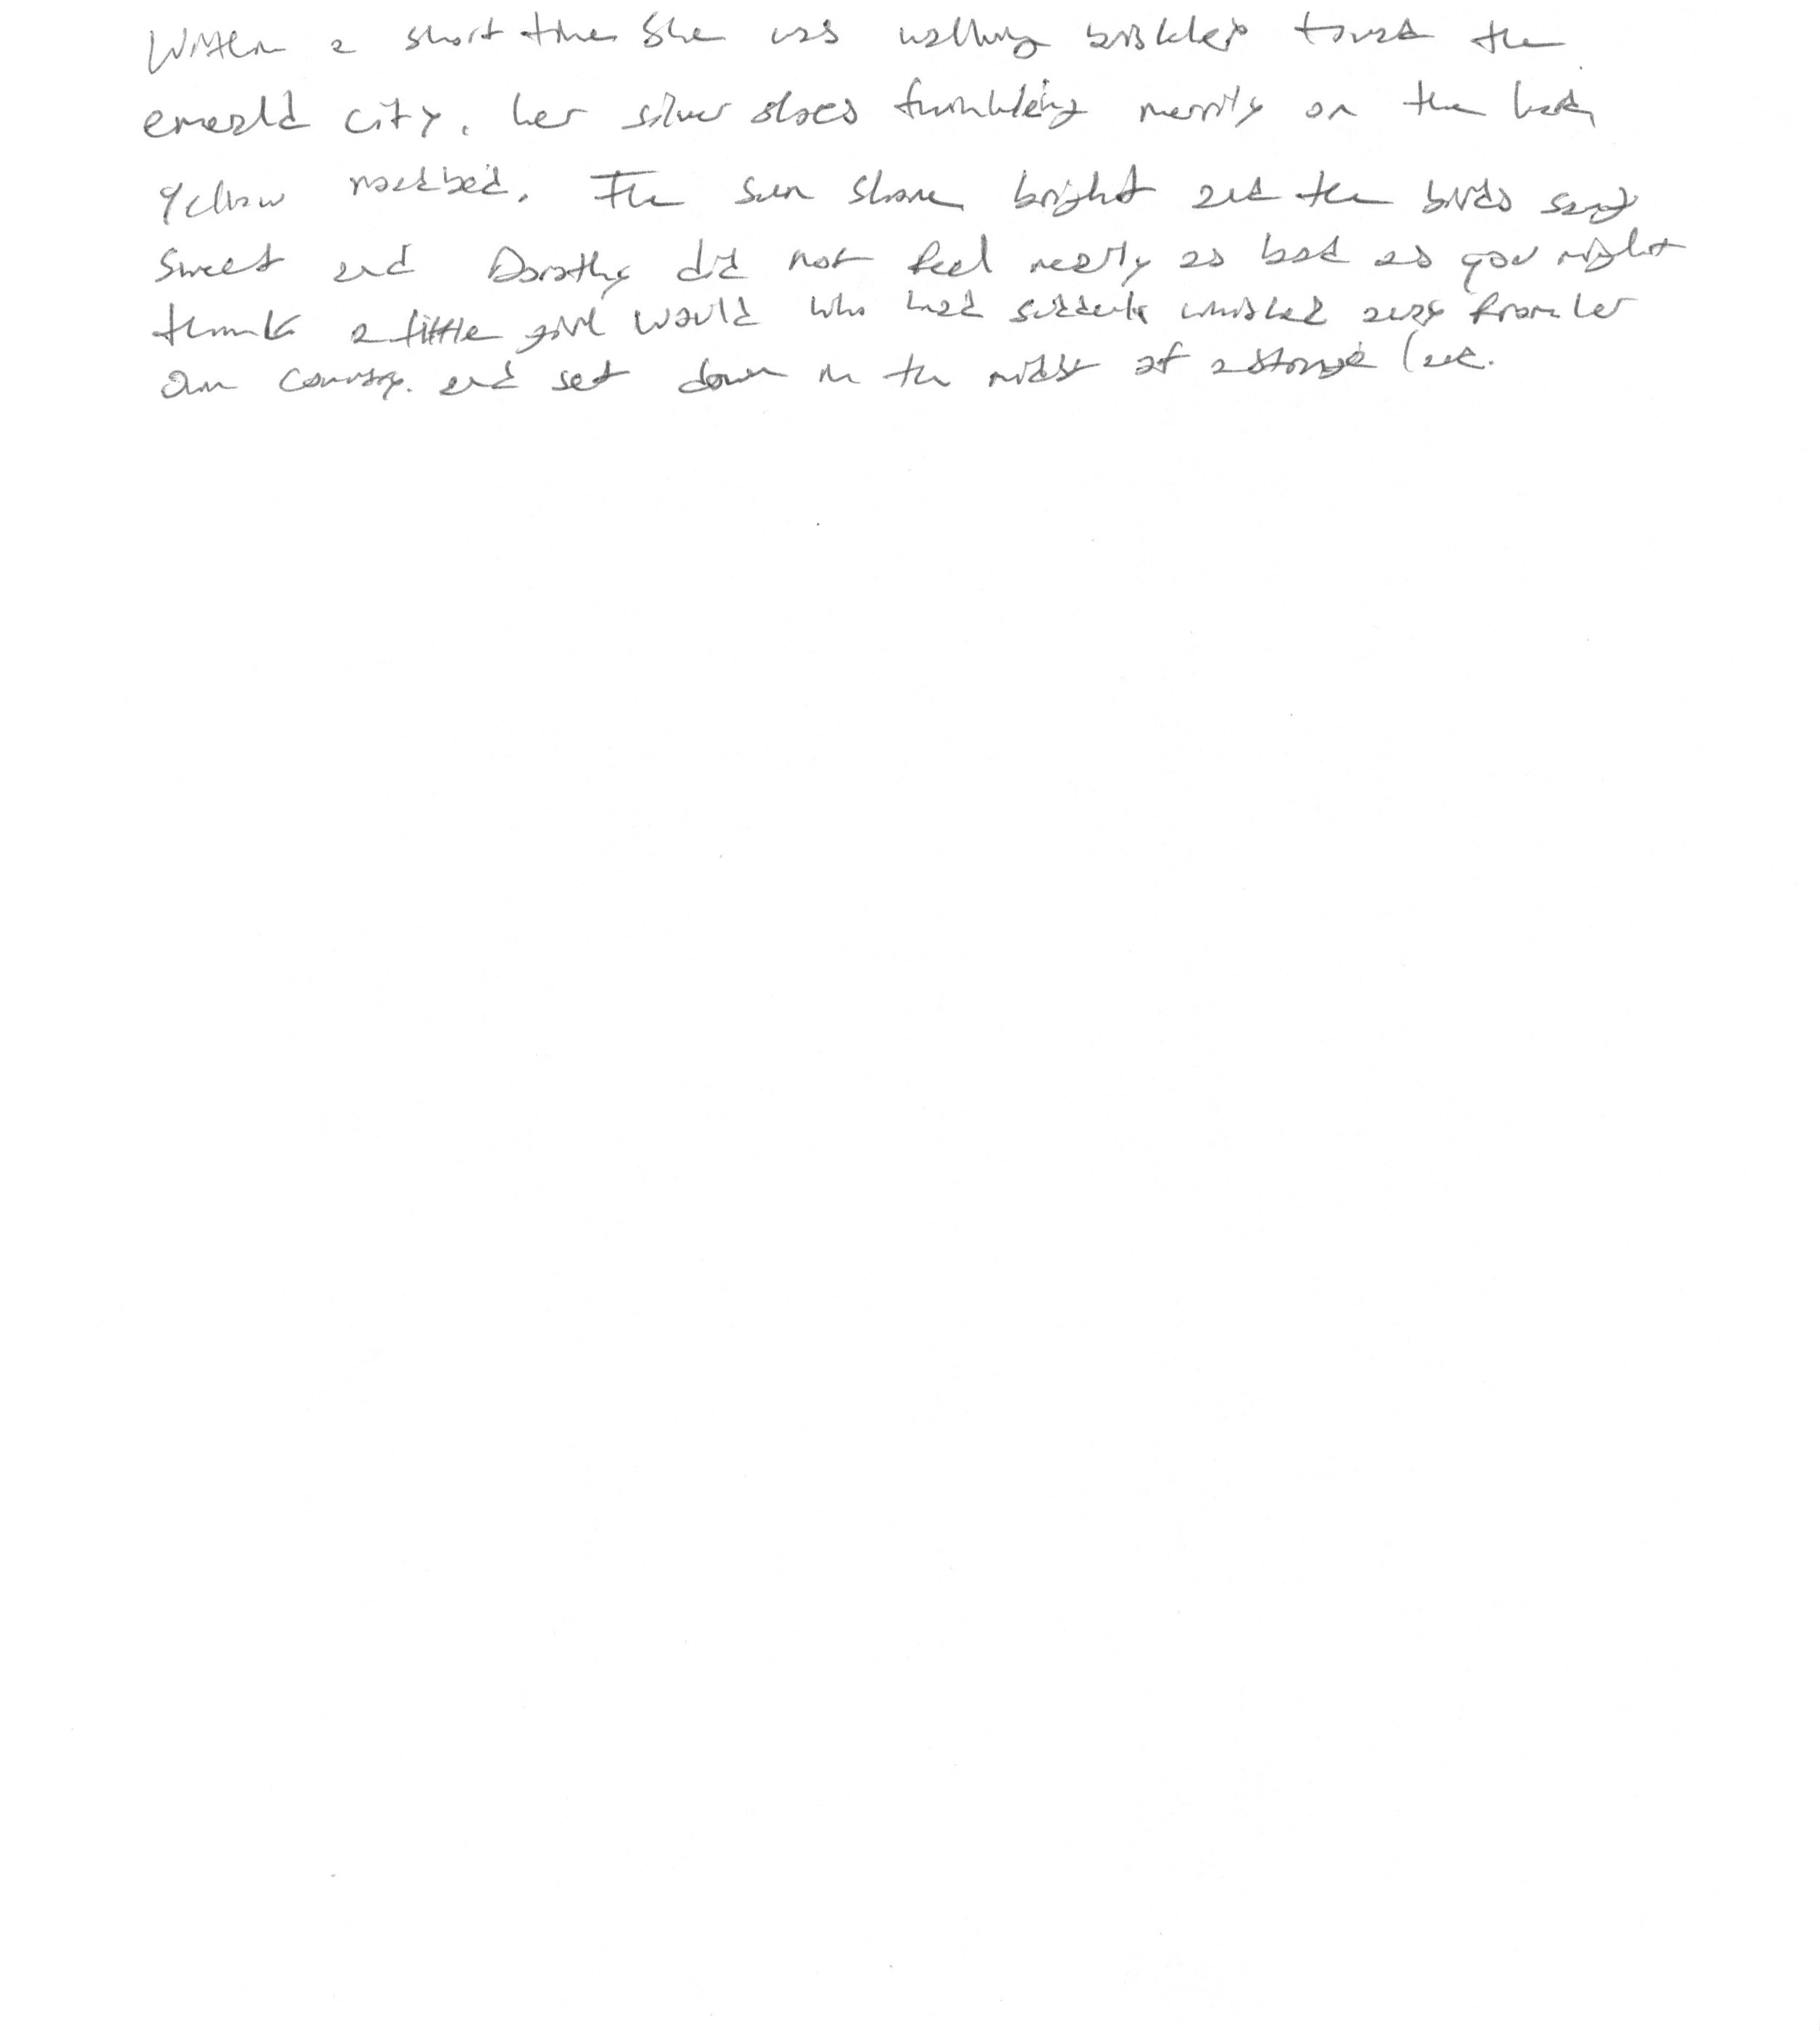 Within a short time she was walking briskley toward the
emerald city, her silver shoes twinkleing merrily on the hard,
yellow roadbed. The sun shone bright and the birds sang
sweet and Dorothy did not feel nearly as bad as you might
think a little girl would who had suddenly whisked away from her
own country. and set down in the midst of a strange land.